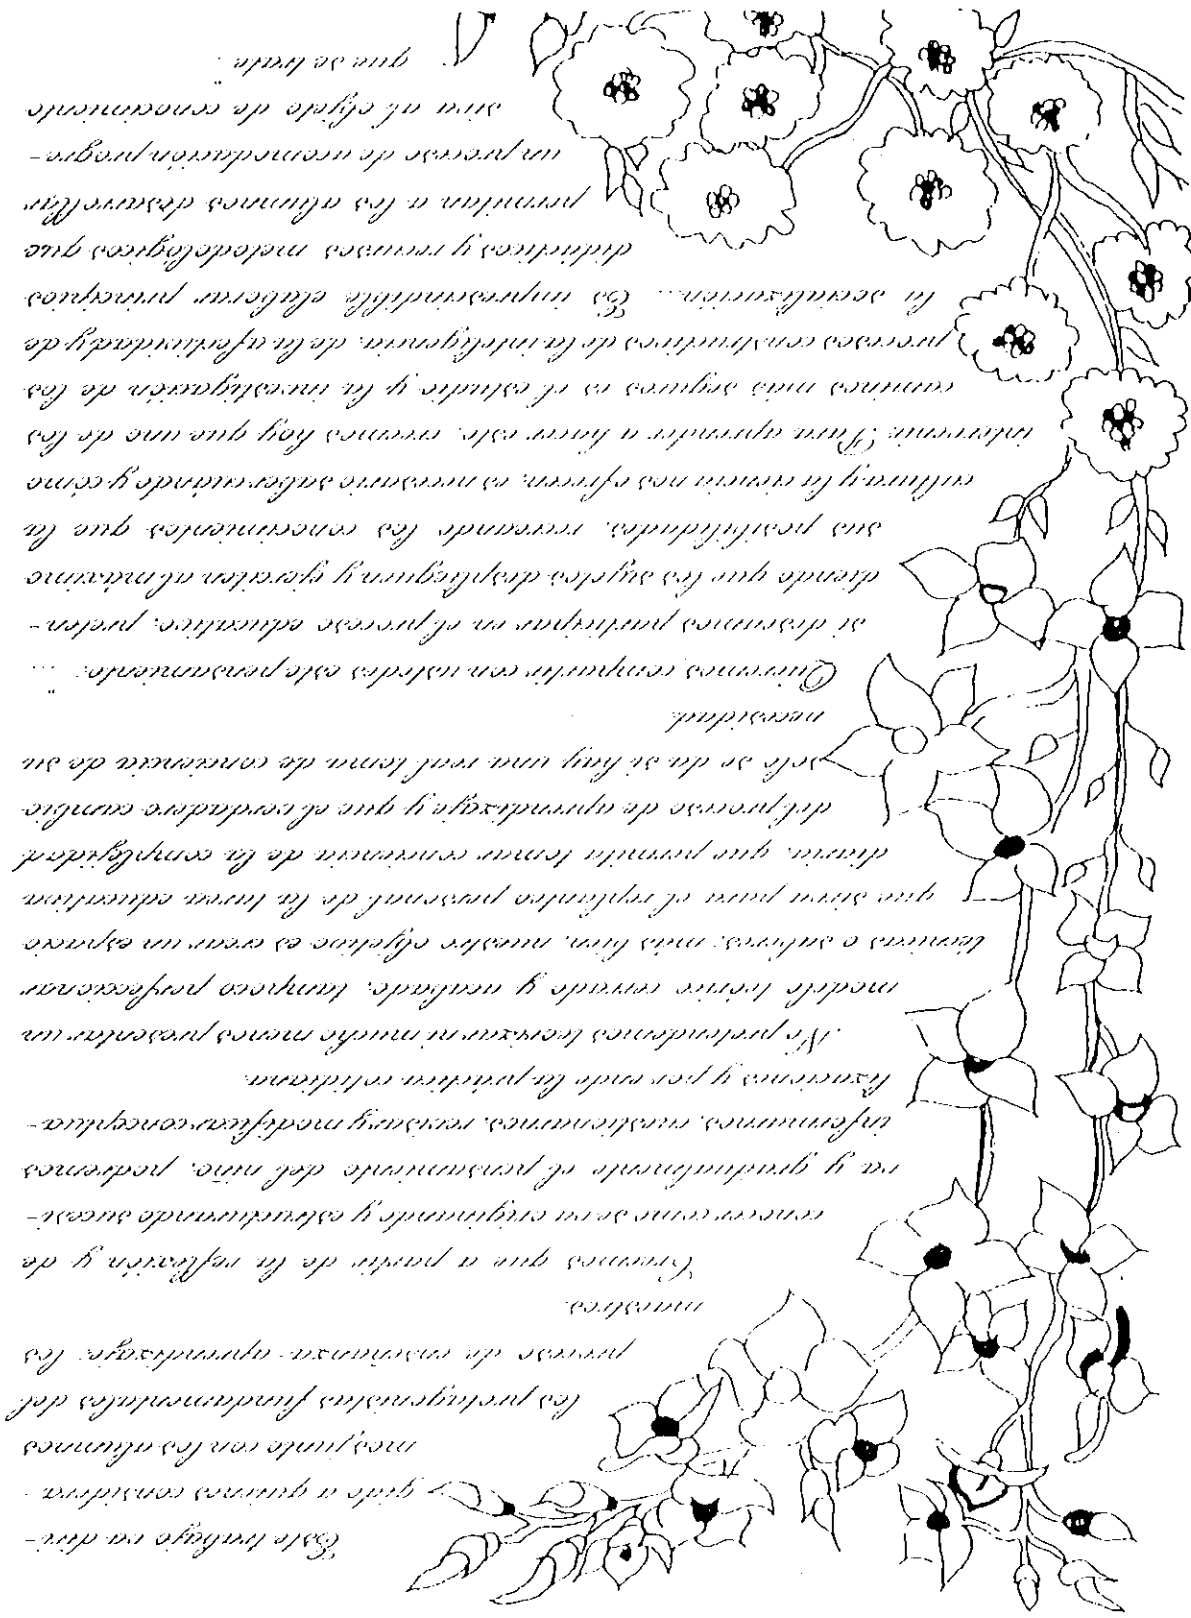 Este trabajo va diri-
gido a quienes considera-
mos junto con los alumnos
los protagonistas fundamentales del
proceso de enseñanza-aprendizaje: los
maestros.
Creemos que a partir de la reflexión y de
conocer como se va originando y estructurando sucesi-
va y gradualmente el pensamiento del niño, podremos
informarnos, cuestionarnos, revisar y modificar conceptua-
lizaciones y por ende la práctica cotidiana.
No pretendemos teorizar ni mucho menos presentar un
modelo teórico cerrado y acabado, tampoco perfeccionar
técnicas o saberes; más bien, nuestro objetivo es crear un espacio
que sirva para el replanteo personal de la tarea educativa
diaria, que permita tomar conciencia de la complejidad
del proceso de aprendizaje y que el verdadero cambio
solo se da si hay una real toma de conciencia de su
necesidad.
Queremos compartir con ustedes este pensamiento: "...
si deseamos participar en el proceso educativo, preten-
diendo que los sujetos desplieguen y ejerciten al máximo
sus posibilidades, recreando los conocimientos que la
cultura y la ciencia nos ofrecen, es necesario saber cuándo y cómo
intervenir. Para aprender a hacer esto, creemos hoy que uno de los
caminos más seguros es el estudio y la investigación de los
procesos constructivos de la inteligencia, de la afectividad y de
la socialización... Es imprescindible elaborar principios
didácticos y recursos metodológicos que
permitan a los alumnos desarrollar
un proceso de acomodación progre-
siva al objeto de conocimiento
que se trate".